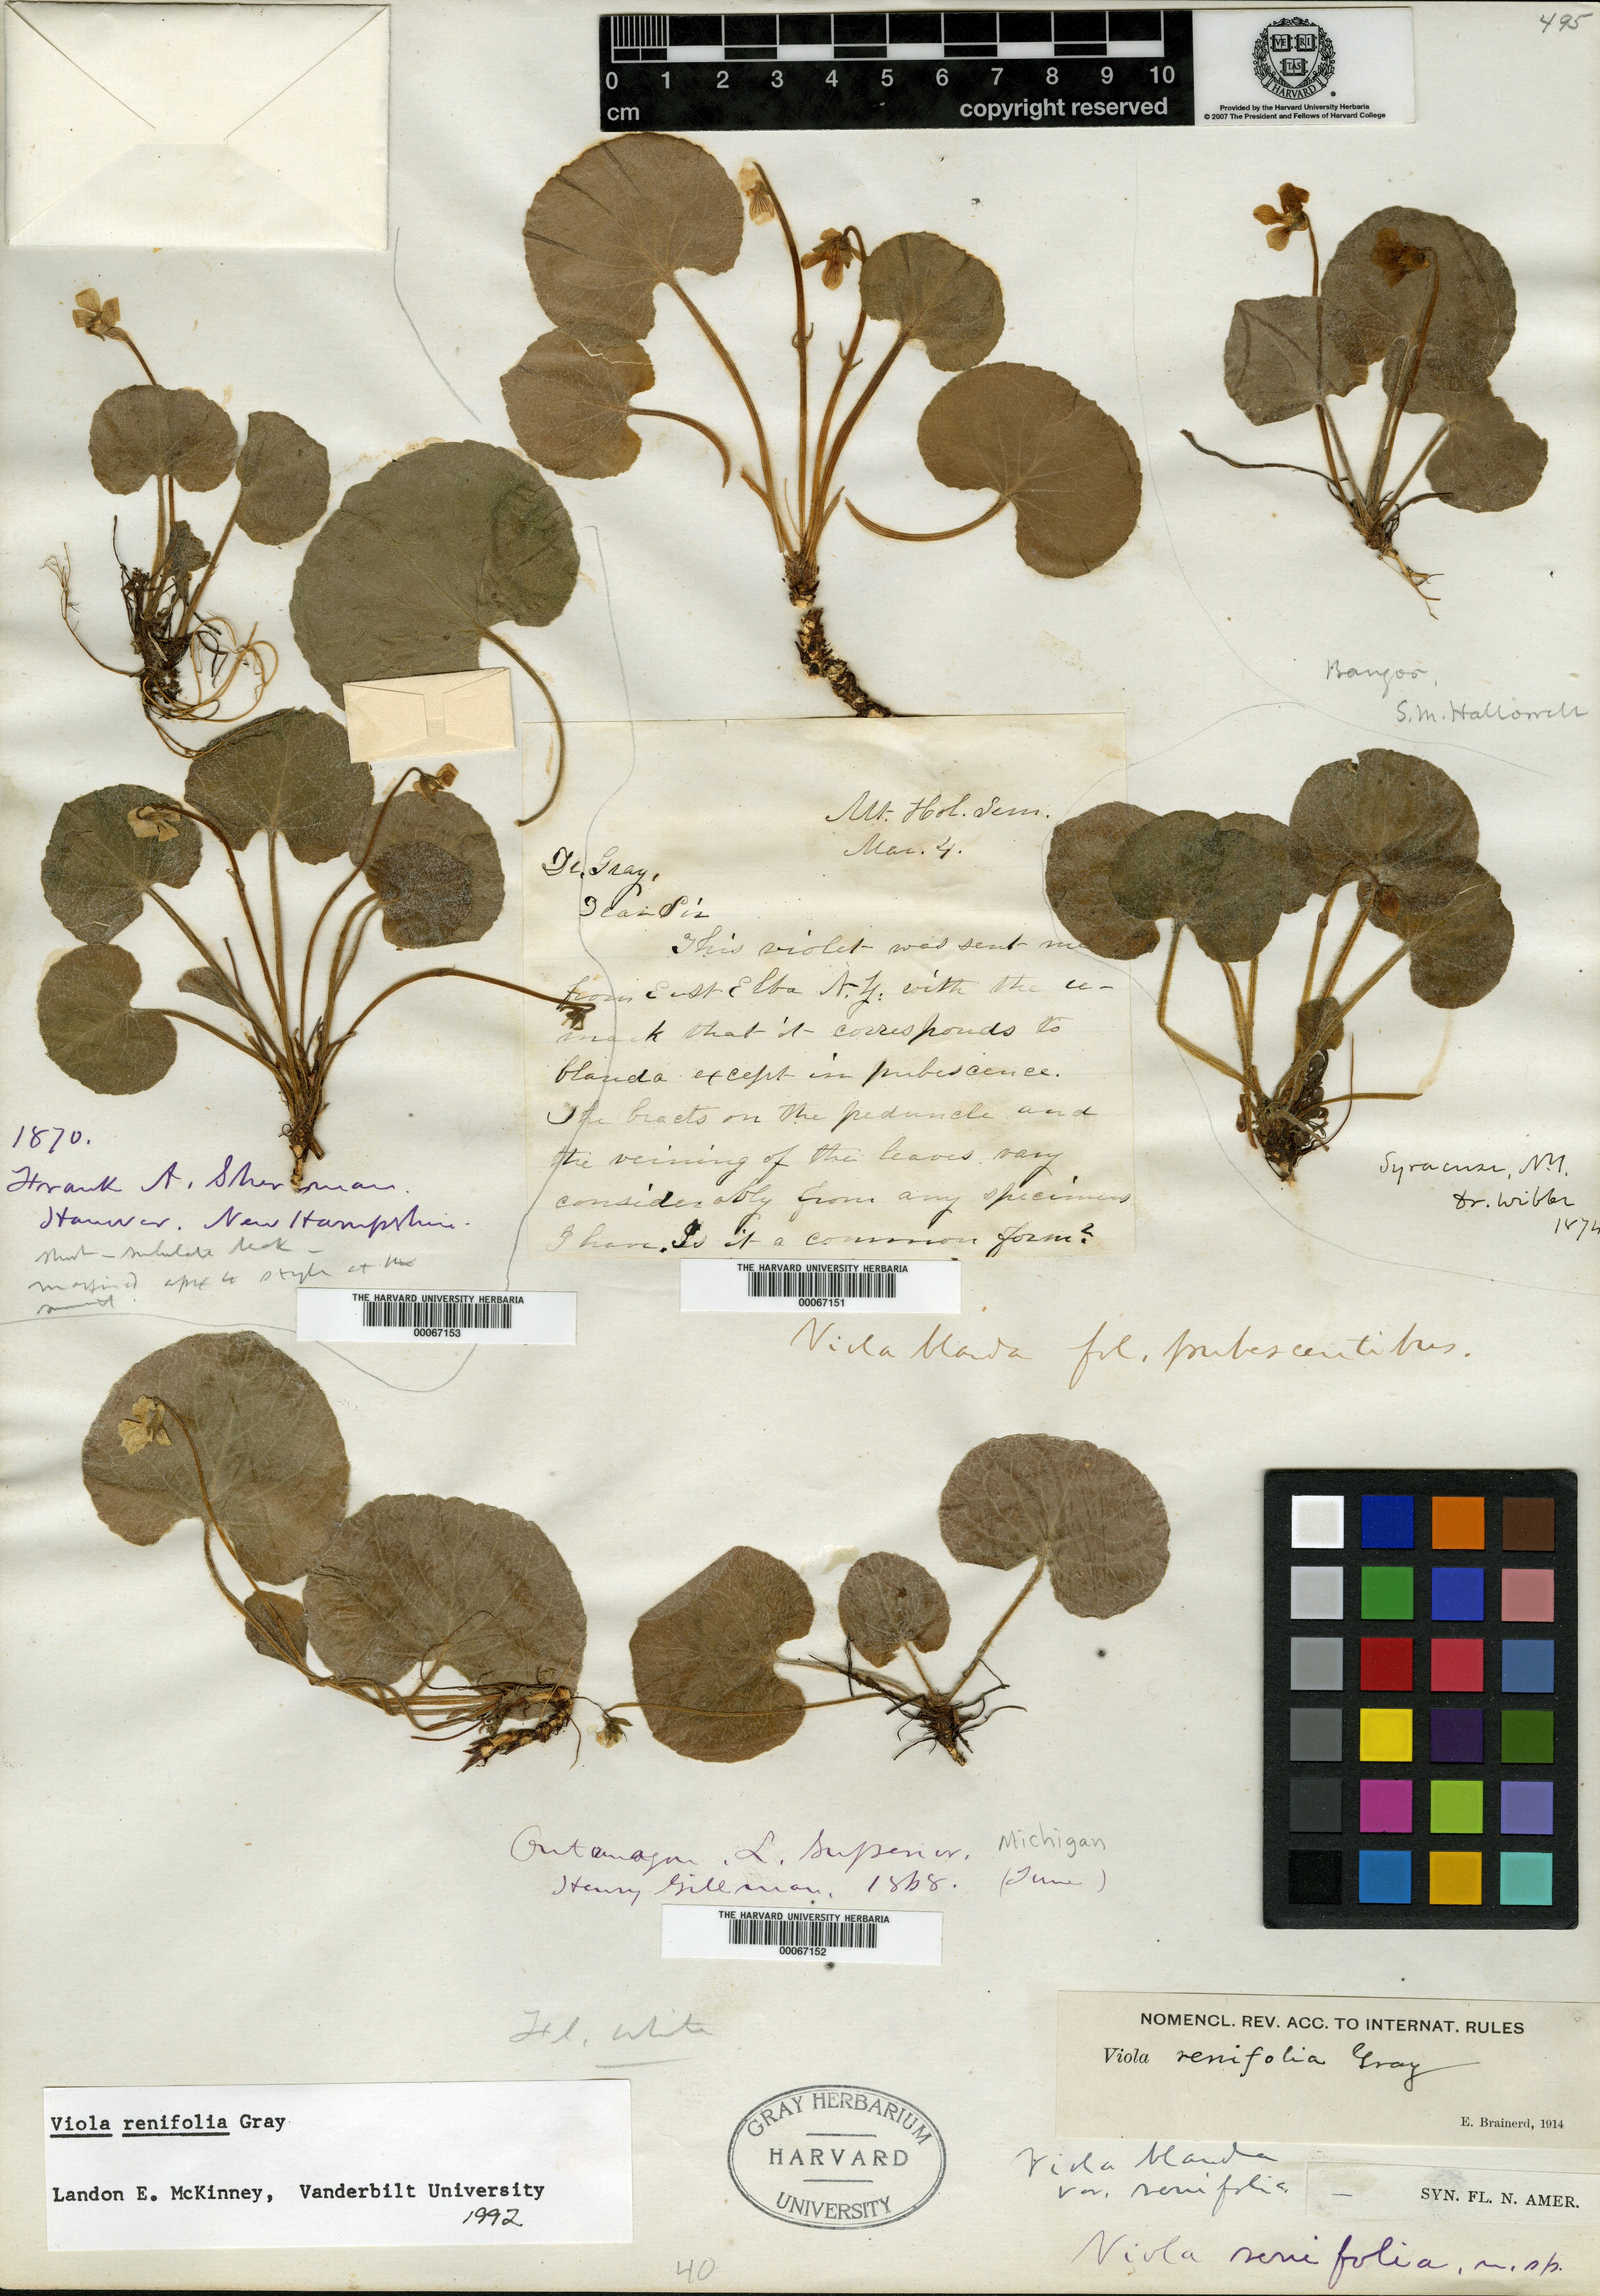 495
0 1 2 3 4 5 6 7 8 9 10
cm
copyright reserved
VE RI
TAS
HARVARD
Provided by the Harvard University Herbaria
© 2007 The President and Fellows of Harvard College
Bangor,
S.M. Hallowell
Mt. Hol. Sem.
Mar. 4.
Dr. Gray,
Dear Sir
This violet was sent me
from East Elba N.Y. with the re-
mark that it corresponds to
blanda except in pubescence.
The bracts on the peduncle and
the veining of the leaves vary
considerably from any specimens
I have. Is it a common form?
1870.
Frank A. Sherman.
Hanover. New Hampshire.
short - subulate beak -
margined apex to style at the
summit.
Syracuse, N.Y.
Dr. Wibbe
1874
THE HARVARD UNIVERSITY HERBARIA
00067151
THE HARVARD UNIVERSITY HERBARIA
00067153
Viola blanda fol. pubescentibus.
Ontonagon, L. Superior. Michigan
Henry Gillman, 1868. (June)
THE HARVARD UNIVERSITY HERBARIA
00067152
Fl. white
NOMENCL. REV. ACC. TO INTERNAT. RULES
Viola renifolia Gray
E. Brainerd, 1914
Viola renifolia Gray
Landon E. McKinney, Vanderbilt University
1992
GRAY HERBARIUM
HARVARD
UNIVERSITY
Viola blanda
var. renifolia.
— SYN. FL. N. AMER.
Viola renifolia, n. sp.
40